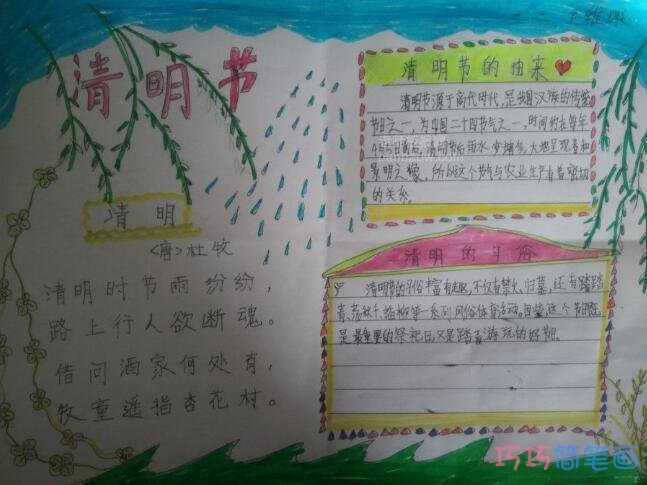 清明节
三二 王维
清明
<唐>杜牧
清明时节雨纷纷，
路上行人欲断魂。
借问酒家何处有，
牧童遥指杏花村。
清明节的由来
清明节源于商代时代,是我国汉族的传统
节日之一,为中国二十四节气之一,时间约在每年
4月5日前后,清明节后雨水
景明之象。所以这个节气与农业生产有着密切
的关系。
清明的习俗
清明节的习俗丰富有趣,不仅有禁火、扫墓,还有踏踏
青、荡秋千、插柳等一系列风俗体育活动。
是最重要的祭祀日,又是踏青游玩的好期。
巧巧简笔画